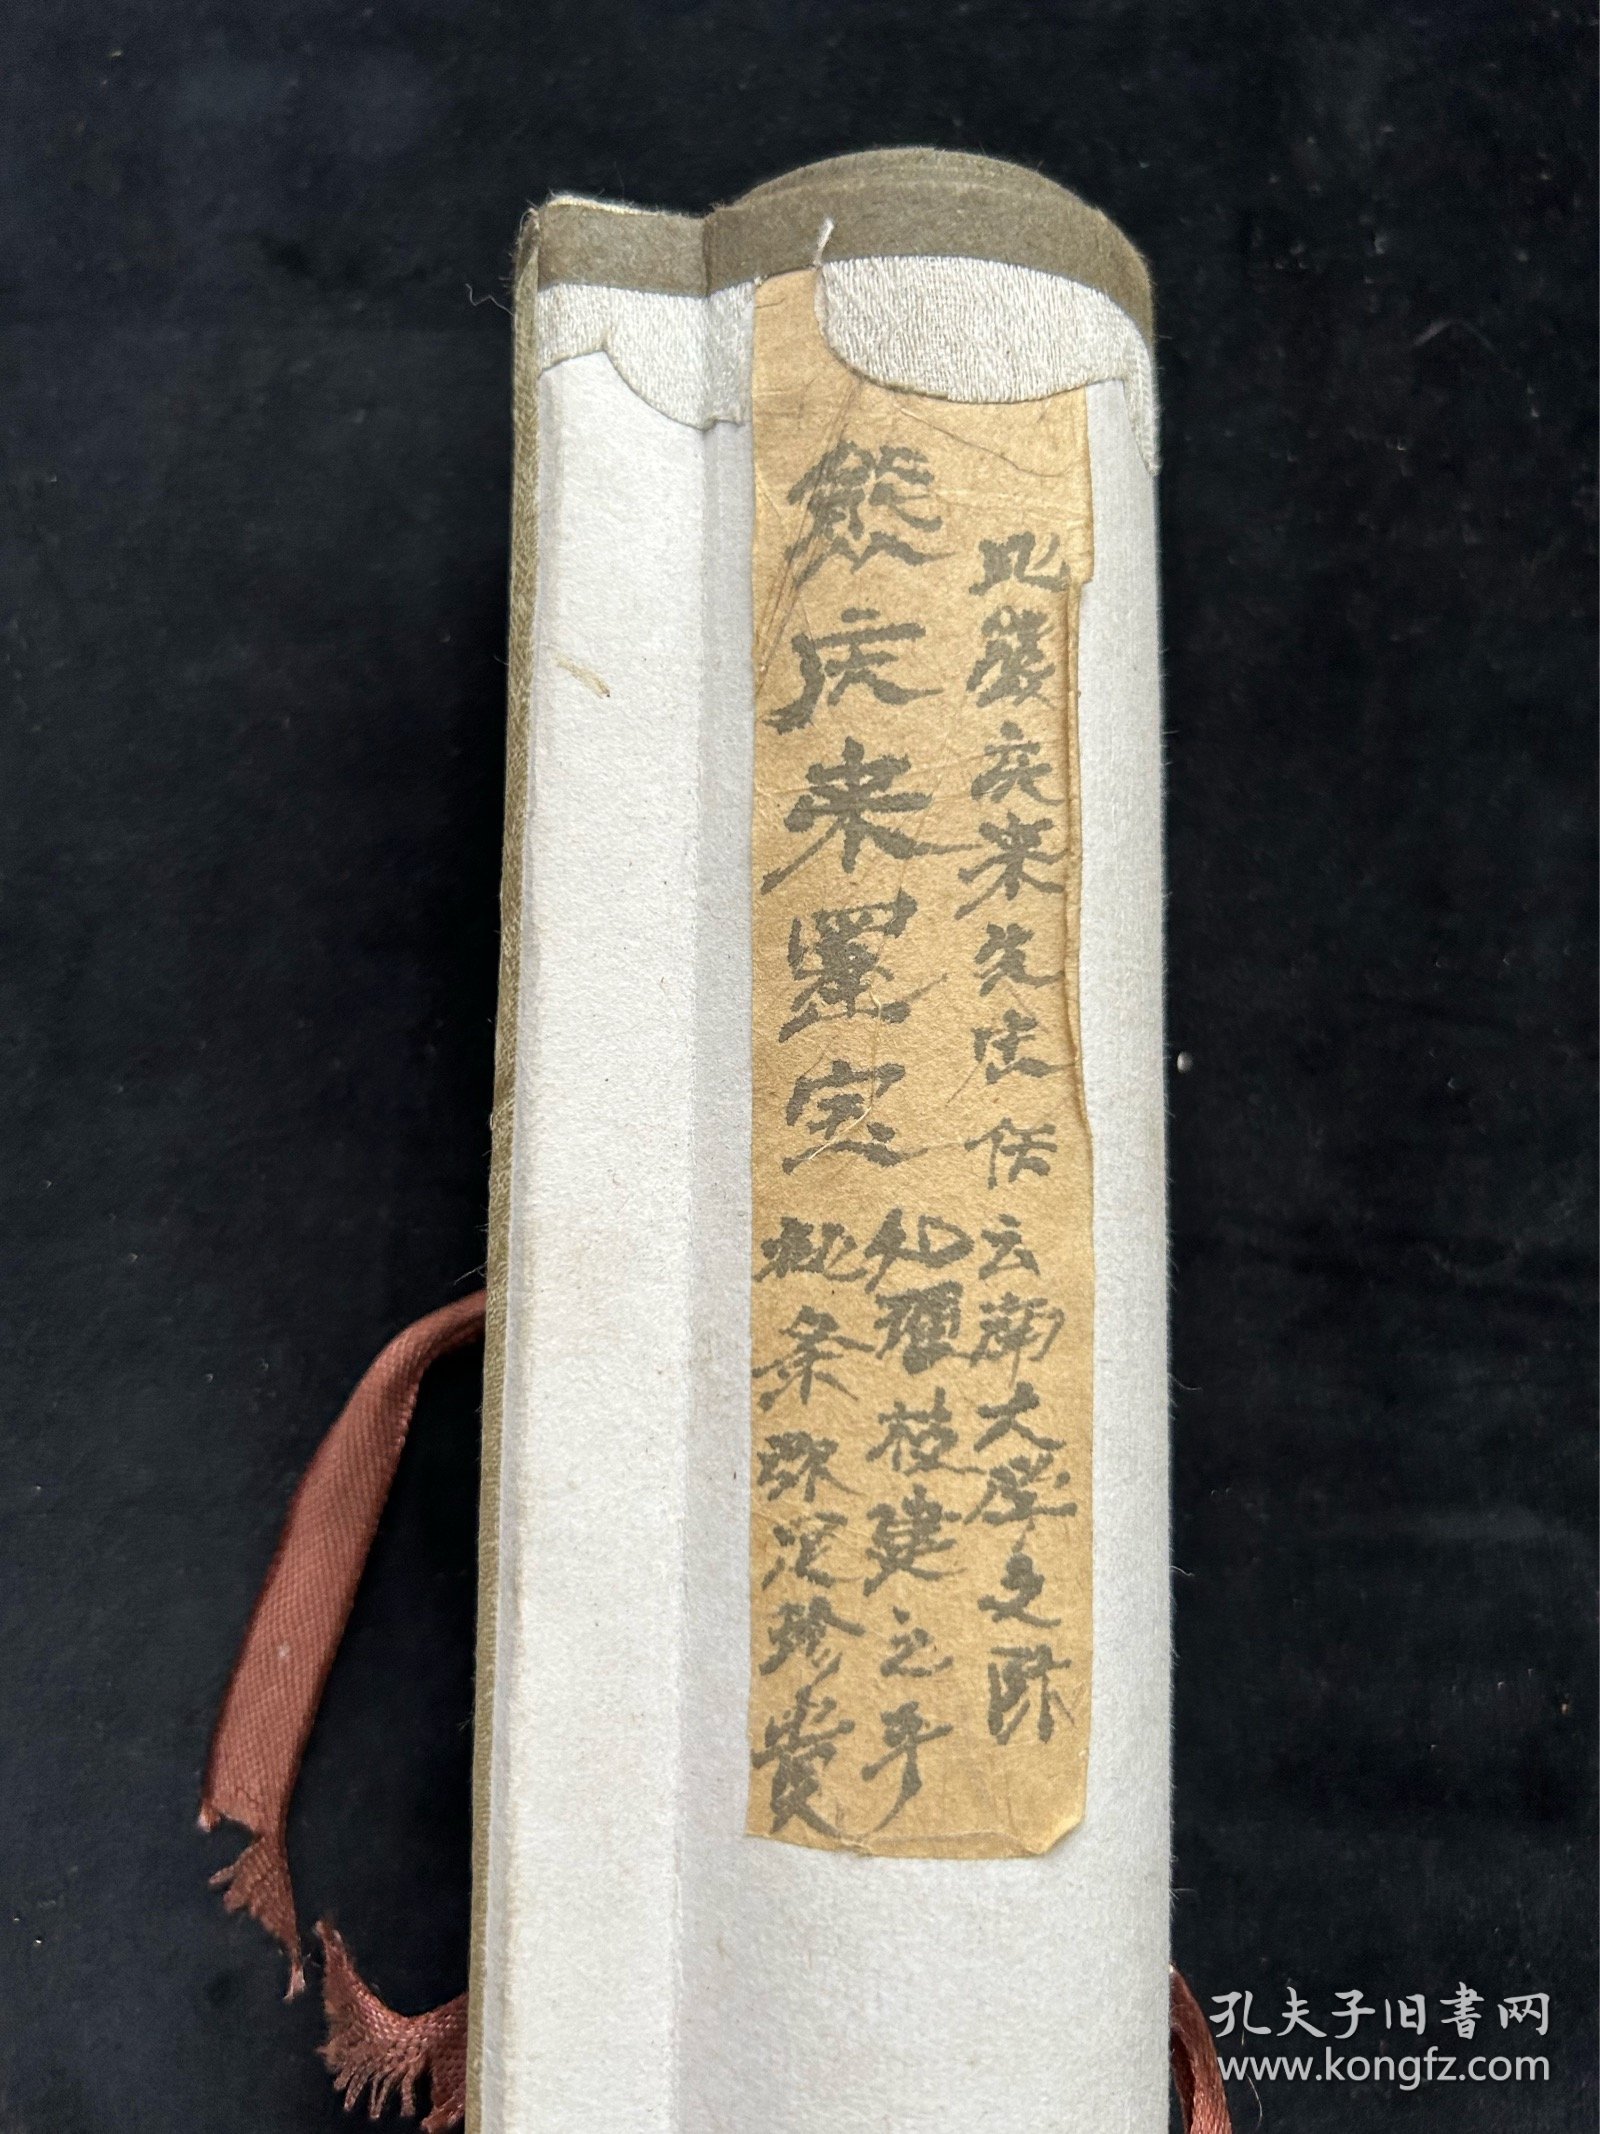 熊庆来墨宝
此庆来先生任云南大学之际
处理校建之手
批条弥足珍贵
孔夫子旧书网
www.kongfz.com